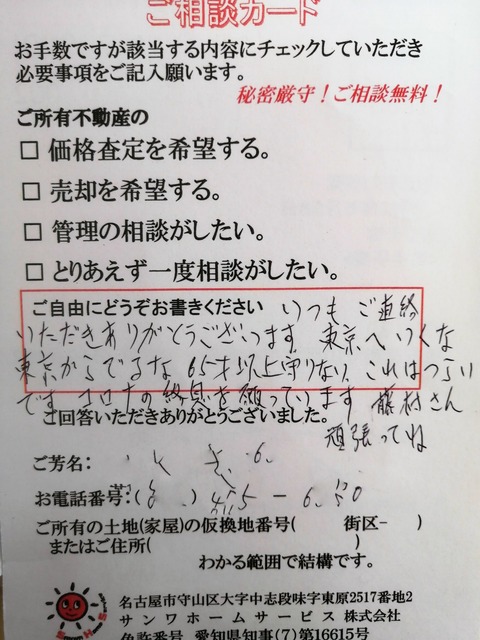 ご相談カード
お手数ですが該当する内容にチェックしていただき
必要事項をご記入願います。
秘密厳守!ご相談無料!
ご所有不動産の
□ 価格査定を希望する。
□ 売却を希望する。
□ 管理の相談がしたい。
□ とりあえず一度相談がしたい。
ご自由にどうぞお書きください いつも ご連絡
いただきありがとうございます 東京へいくな
東京からでるな 65才以上守りない、これはつらい
です コロナの終息を願っています 藤村さん
ご回答いただきありがとうございました。
頑張ってね
ご芳名:
お電話番号:
ご所有の土地(家屋)の仮換地番号( 街区- )
またはご住所( )
わかる範囲で結構です。
名古屋市守山区大字中志段味字東原2517番地2
サンワホームサービス 株式会社
免許番号 愛知県知事(7)第16615号